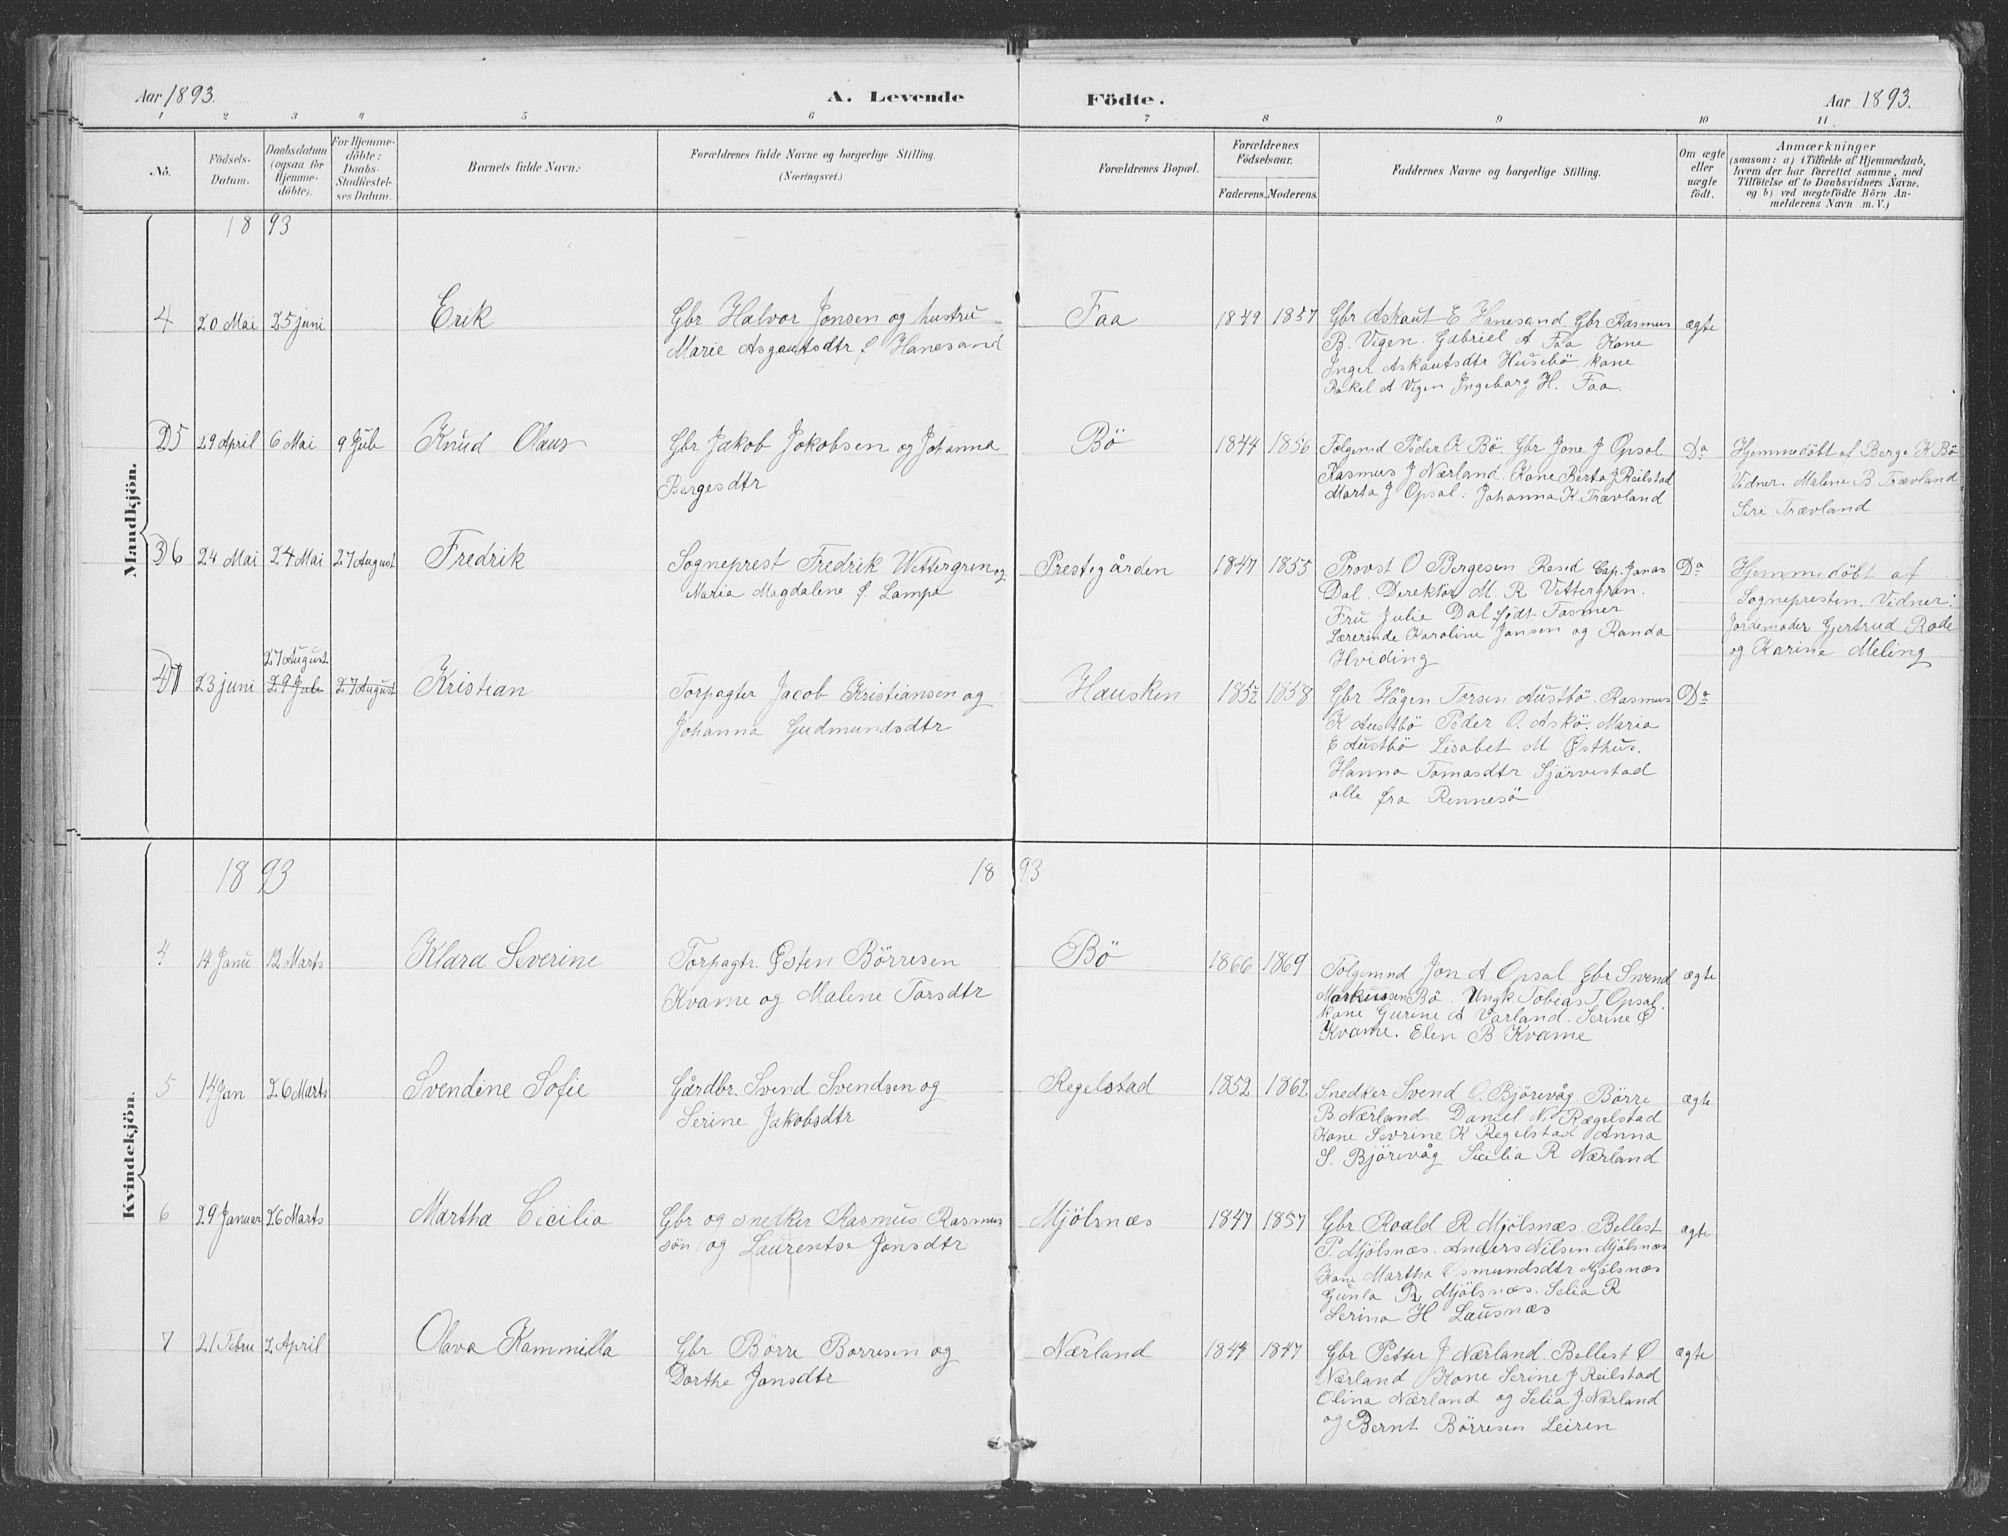 Aar 1893. A. Levende Födte. Aar 1893.
1 2 3 4 5 6 7 8 9 10 11
No. Födsels-Datum. Daabsdatum (ogsaa for Hjemmedöbte). For Hjemmedöbte: Daabs-Stadfæstelses Datum. Barnets fulde Navn: Forældrenes fulde Navne og borgerlige Stilling. (Næringsvei.) Forældrenes Bopæl. Forældrenes Födselsaar. Faderens. Moderens. Faddernes Navne og borgerlige Stilling. Om ægte eller uægte födt. Anmærkninger (saasom: a) i Tilfælde af Hjemmedaab, hvem der har forrettet samme, med Tilföielse af to Daabsvidners Navne, og b) ved uægtefödte Börn Anmelderens Navn m. V.)
Mandkjön.
1893
4 20 Mai 25 juni Erik Gbr Halvor Jonsen og hustru Faa 1849 1857 Gbr Askaut E Hanesand Gbr Rasmus ægte
Marie Asgautsdtr f. Hanesand B. Vigen. Gabriel A Faa Kone
Inger Askautsdtr Husebö kone
Rakel A Vigen Ingeborg H. Faa.
5 29 April 6 Mai 9 Jule Knud Olaus Gbr Jakob Jokobsen og Johanna Bö 1844 1856 Folgemnd Peder K Bö. Gbr Jone J Opsal Do Hjemmedöbt af Berge K Bö
Bergesdtr Rasmus J Nærland. Kone Berta J Reilstad Vidner. Malene B Trævland
Marta J Opsal: Johanna K. Trævland Siri Trævland
6 24 Mai 24 Mai 27 August Fredrik Sogneprest Fredrik Wettergren og Prestegården 1847 1855 Provst O Bergesen Rend Cap. Jonas Do Hjemmedöbt af
Maria Magdalene f. Lampe Dal. Direktör M. R Vettergren. Sognepresten. Vidner:
Fru Julie Dal födt Fasmer Jordemoder Gjertrud Rode
Lærerinde Karoline Jansen og Randa og Karine Meling
Hviding
27 August
7 23 juni 29 Jule 27 August Kristian Torpagter Jacob Kristiansen og Hausken 1852 1858 Gbr Hågen Torsen Austbö. Rasmus Do
Johanna Gudmundsdtr K Austbö Peder O. Askö. Maria
E Austbö Lisabet M Østhus.
Hanna Tomasdtr Sjörvestad
alle fra Rennesö
Kvindekjön.
1893 1893
4 14 Janu 12 Marts Klara Severine Torpagtr. Østen Börresen Bö 1866 1869 Folgemnd Jon A Opsal Gbr Svend ægte
Kvame og Malene Torsdtr Markussen Bö. Ungk. Tobias T Opsal.
kone Gurine A Varland. Serine Ø
Kvame. Elen B Kvame
5 14 Jan 26 Marts Svendine Sofie Gårdbr. Svend Svendsen og Regelstad 1852 1862 Snedker Svend O. Bjørevåg Börre ægte
Serine Jakobsdtr B Nærland. Daniel N. Rægelstad
Kone Sevrine K Regelstad Anna
S. Björevåg Sicilia R Nærland
6 29 Januar 26 Marts Martha Cecilia Gbr og snedker Rasmus Rasmus Mjölsnæs 1847 1857 Gbr Roald R Mjölsnæs. Bellest ægte
sön og Laurentse Jonsdtr P. Mjölsnæs. Anders Nilsen Mjölsnæs
Kone Martha Osmundsdtr Mjölsnæs
Gunla R Mjölsnæs. Selia R
Serina H Lausnæs
7 21 Febru 2 April Olava Kammilla Gbr Börre Borresen og Nærland 1844 1847 Gbr Petter J Nærland. Bellest Ø ægte
Dorthe Jonsdtr Nærland Kone Serine J Reilstad
Olina Nærland og Selia J. Nærland
og Bernt Börresen Leiren